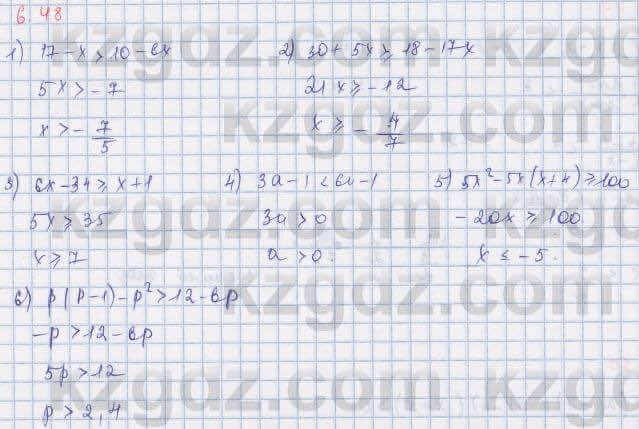 6.48
1) 17-x>10-6x 2) 30+5x≥18-17x
5x>-7 21x≥-12
x>-7/5 x≥-4/7
3) 6x-34≥x+1 4) 3a-1<6a-1 5) 5x²-5x(x+4)≥100
5x≥35 3a>0 -20x≥100
x≥7 a>0. x≤-5.
6) p(p-1)-p²>12-6p
-p>12-6p
5p>12
p>2,4
kzgdz.com
kzgdz.com
kzgdz.com
kzgdz.com
kzgdz.com